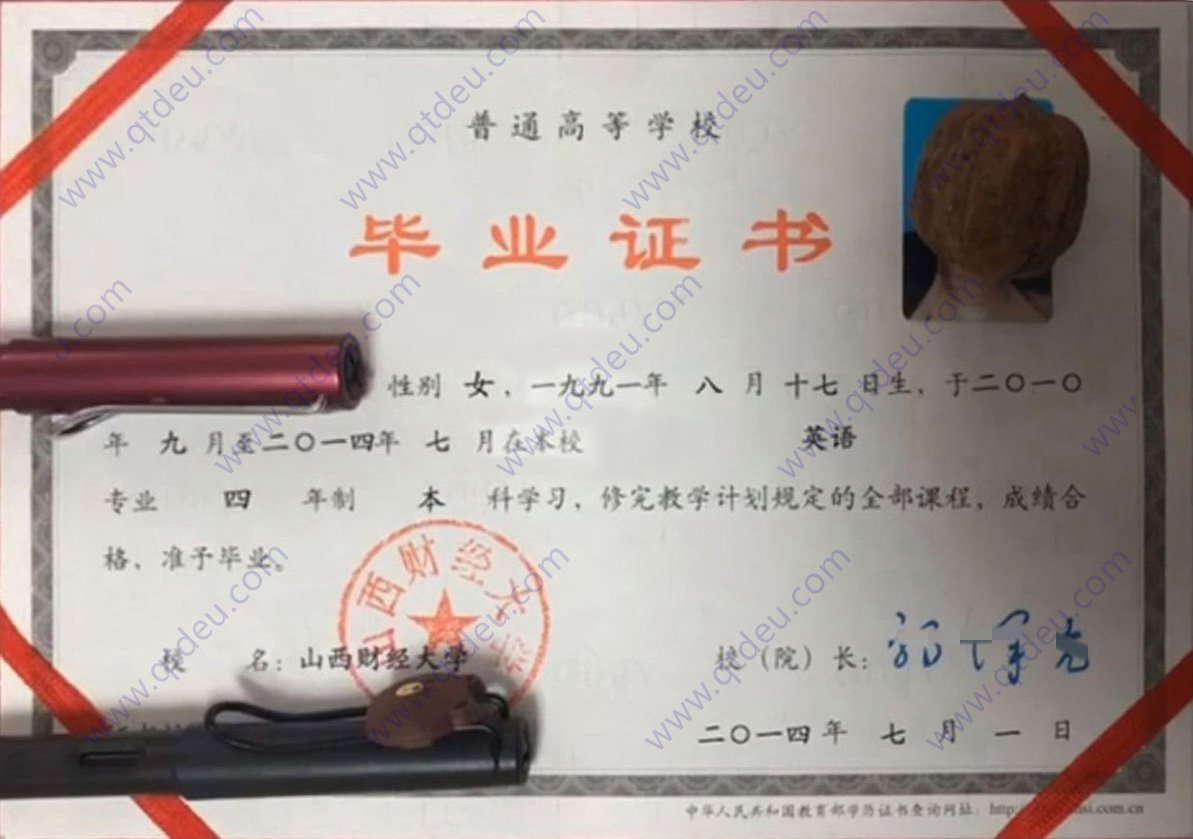 普通高等学校
毕业证书
性别 女，一九九一年 八 月 十七 日生，于二〇一〇
年 九 月至二〇一四年 七 月在本校 英语
专业 四 年制 本 科学习，修完教学计划规定的全部课程，成绩合
格，准予毕业。
山西财经大学
校 名：山西财经大学
校（院）长：
二〇一四年 七 月 一 日
中华人民共和国教育部学历证书查询网址：
www.qtdeu.com